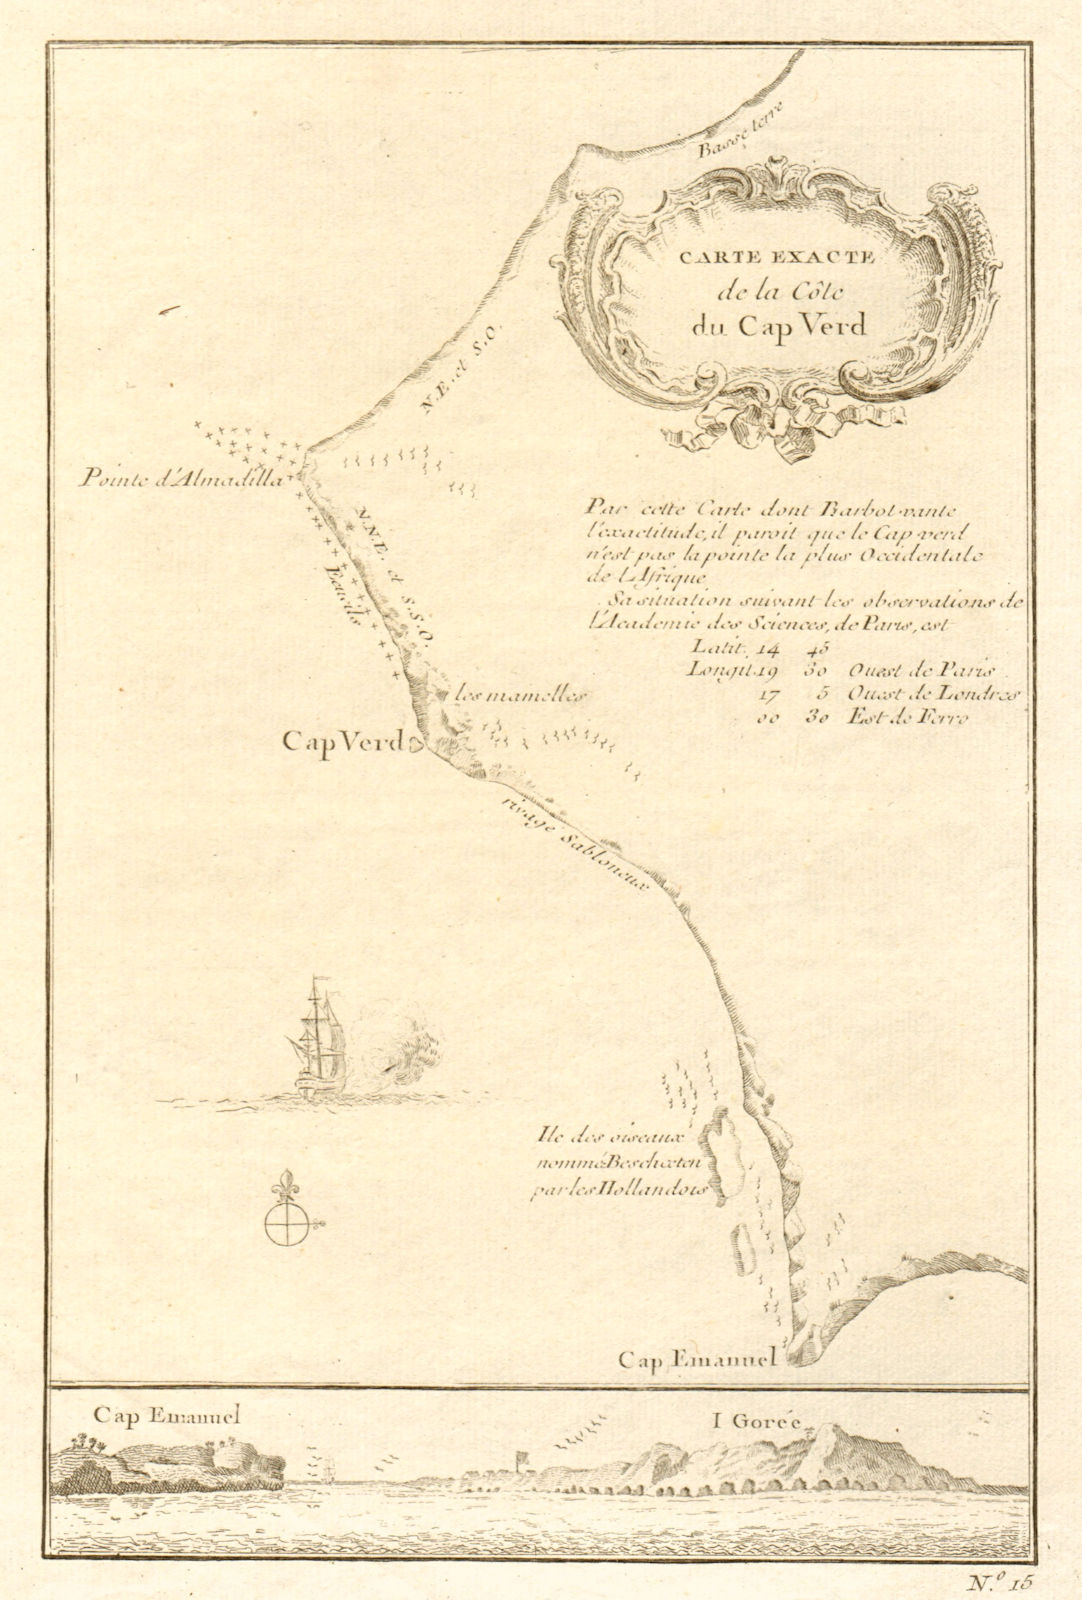 Basse terre
CARTE EXACTE
de la Côte
du Cap Verd
N.E. et S.O.
Pointe d'Almadilla
N.N.E. et S.S.O.
Ecueils
Par cette Carte dont Barbot vante
l'exactitude, il paroit que le Cap verd
n'est pas la pointe la plus Occidentale
de l'Afrique
Sa situation suivant les observations de
l'Academie des Sciences, de Paris, est
Latit. 14 45
Longit. 19 30 Ouest de Paris
17 5 Ouest de Londres
00 30 Est de Ferro
les mamelles
Cap Verd
rivage Sabloneux
Ile des oiseaux
nommé Bescheeten
par les Hollandois
Cap Emanuel
Cap Emanuel
I Gorée
N.º 15